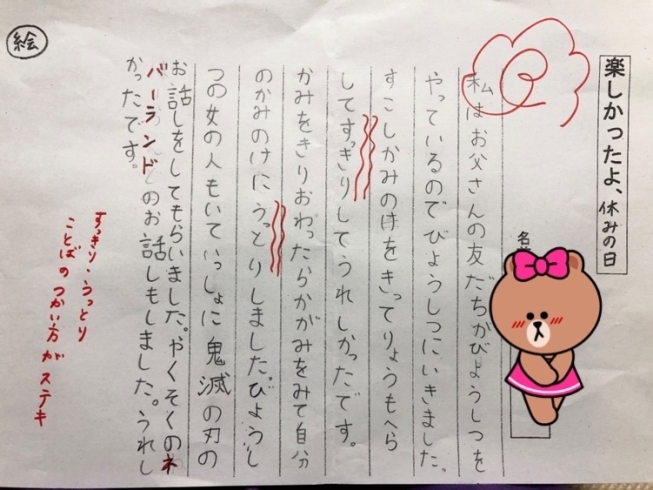 楽しかったよ、休みの日
名
私はお父さんの友だちがびょうしつを
やっているのでびょうしつにいきました、
すこしかみの毛をきってりょうもへら
してすっきりしてうれしかったです。
かみをきりおわったらかがみをみて自分
のかみのけにうっとりしました。びょうし
つの女の人もいていっしょに鬼滅の刃の
お話しをしてもらいました。やくそくのネ
バーランドのお話しもしました。うれし
かったです。
すっきり、うっとり
ことばのつかい方がステキ
絵